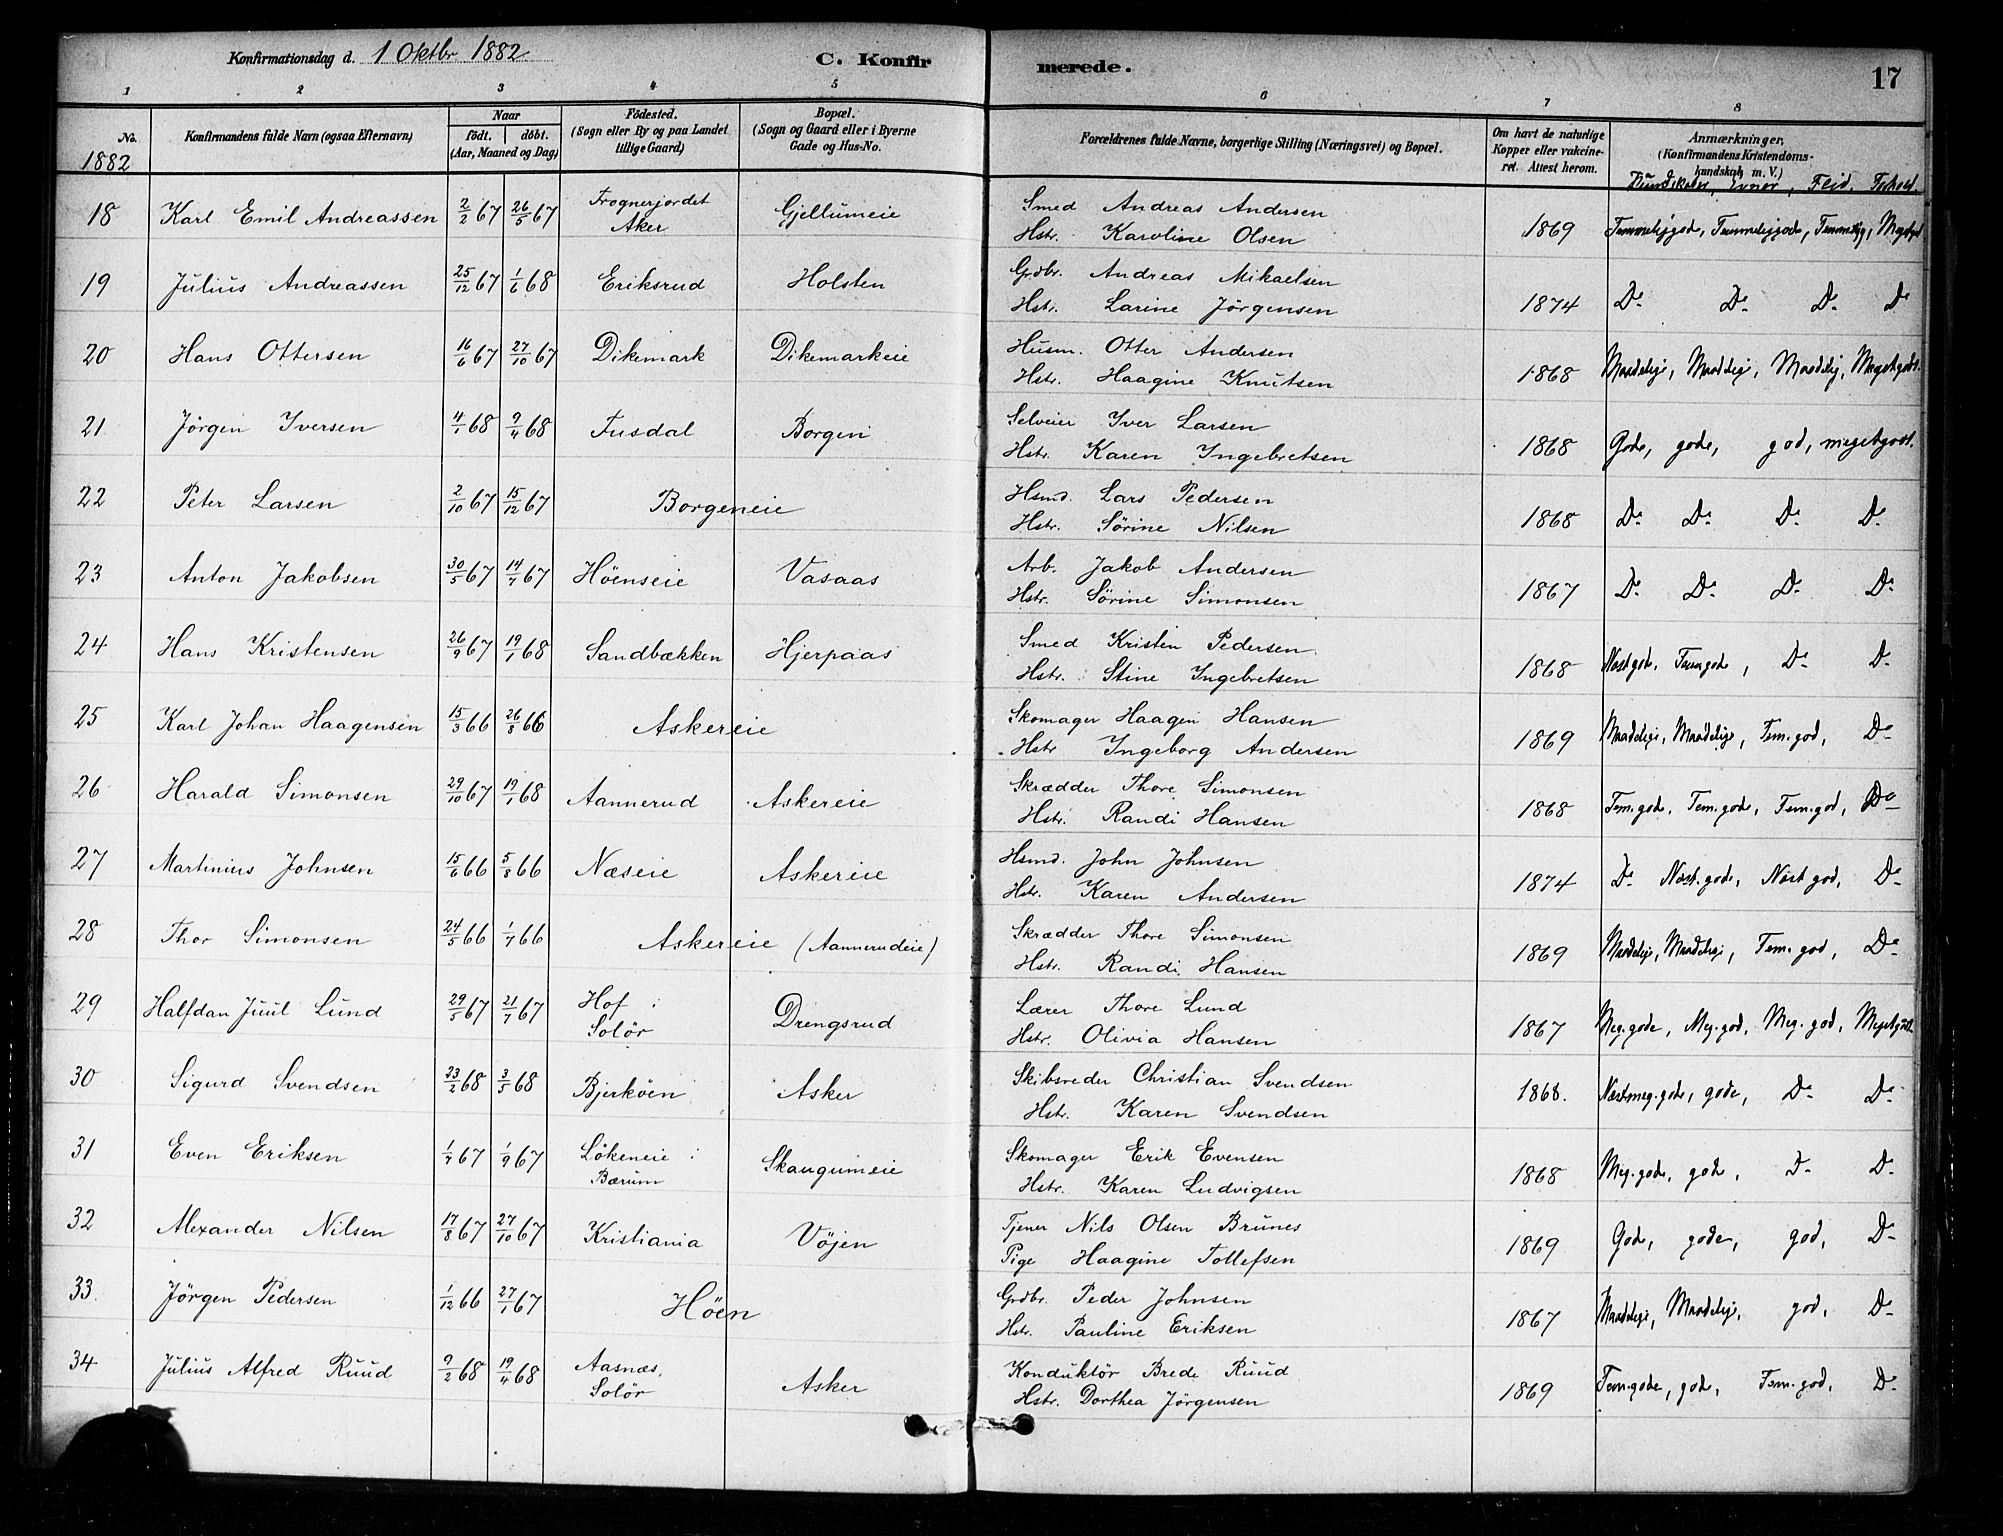 Konfirmationsdag d. 1 Oktbr 1882.
C. Konfir
merede.
17
1 2 3 4 5 6 7 8
No.
1882
Konfirmandens fulde Navn (ogsaa Efternavn)
Naar
födt. döbt.
(Aar, Maaned og Dag)
Födested.
(Sogn eller By og paa Landet
tillige Gaard)
Bopæl.
(Sogn og Gaard eller i Byerne
Gade og Hus-No.
Forældrenes fulde Navne, borgerlige Stilling (Næringsvei) og Bopæl.
Om havt de naturlige
Kopper eller vakcine-
ret. Attest herom.
Anmærkninger.
(Konfirmandens Kristendoms-
kundskab m. V.)
Kundskaber, Evner, Flid, Forhold.
18 Karl Emil Andreassen 2/2 67 26/5 67 Frognerjordet Aker Gjellumeie Smed Andreas Andersen 1869 Temmeliggode, Temmeliggode, Temmelig, Megetgodt
Hstr. Karoline Olsen
19 Julius Andreassen 25/12 67 1/6 68 Eriksrud Holsten Grdbr. Andreas Mikaelsen 1874 Do Do Do Do
Hstr. Larine Jörgensen
20 Hans Ottersen 16/6 67 27/10 67 Dikemark Dikemarkeie Husm. Otter Andersen 1868 Maadelige, Maadelige, Maadelig, Megetgodt.
Hstr. Haagine Knutsen
21 Jörgen Iversen 4/1 68 9/4 68 Fusdal Borgen Selveier Iver Larsen 1868 Gode, gode, god, megetgodt.
Hstr. Karen Ingebretsen
22 Peter Larsen 2/10 67 15/12 67 Borgeneie Hsmd. Lars Pedersen 1868 Do Do Do Do
Hstr. Sörine Nilsen
23 Anton Jakobsen 30/5 67 14/7 67 Höenseie Vasaas Arb. Jakob Andersen 1867 Do Do Do Do
Hstr. Sörine Simonsen
24 Hans Kristensen 26/9 67 19/1 68 Sandbækken Hjerpaas Smed Kristen Pedersen 1868 Næstgode, Temgode, Do Do
Hstr. Stine Ingebretsen
25 Karl Johan Haagensen 15/3 66 26/8 66 Askereie Skomager Haagen Hansen 1869 Maadelige, Maadelige, Tem. god, Do
Hstr Ingeborg Andersen
26 Harald Simonsen 29/10 67 19/1 68 Aannerud Askereie Skrædder Thore Simonsen 1868 Tem. gode, Tem. gode, Tem. god, Do
Hstr. Randi Hansen
27 Martinius Johnsen 15/6 66 5/8 66 Næseie Askereie Hsmd. John Johnsen 1874 Do Næst. gode, Næst god, Do
Hstr. Karen Andersen
28 Thor Simonsen 24/5 66 1/7 66 Askereie (Aannerudeie) Skrædder Thore Simonsen 1869 Maadelige, Maadelige, Tem. god, Do
Hstr. Randi Hansen
29 Halfdan Juul Lund 29/5 67 21/7 67 Hof i Solör Drengsrud Lærer Thore Lund 1867 Meg. gode, Meg. god, Meg. god, Megetgodt.
Hstr. Olivia Hansen
30 Sigurd Svendsen 23/2 68 3/5 68 Bjerköen Asker Skibsreder Christian Svendsen 1868. Næstmeg. gode, gode, Do Do
Hstr. Karen Svendsen
31 Even Eriksen 1/7 67 1/9 67 Lökeneie i Bærum Skaugumeie Skomager Erik Evensen 1868 Meg. gode, gode, Do Do
Hstr. Karen Ludvigsen
32 Alexander Nilsen 17/8 67 27/10 67 Kristiania Vöjen Tjener Nils Olsen Brunes 1869 Gode, gode, god, Do
Pige Haagine Tollefsen
33. Jörgen Pedersen 1/12 66 27/1 67 Höen Grdbr. Peder Johnsen 1867 Maadelige, Maadelige, god, Do
Hstr. Pauline Eriksen
34 Julius Alfred Ruud 9/2 68 19/4 68 Aasnæs, Solör Asker Konduktör Brede Ruud 1869 Tem. gode, gode, Tem. god, Do
Hstr. Dorthea Jörgensen